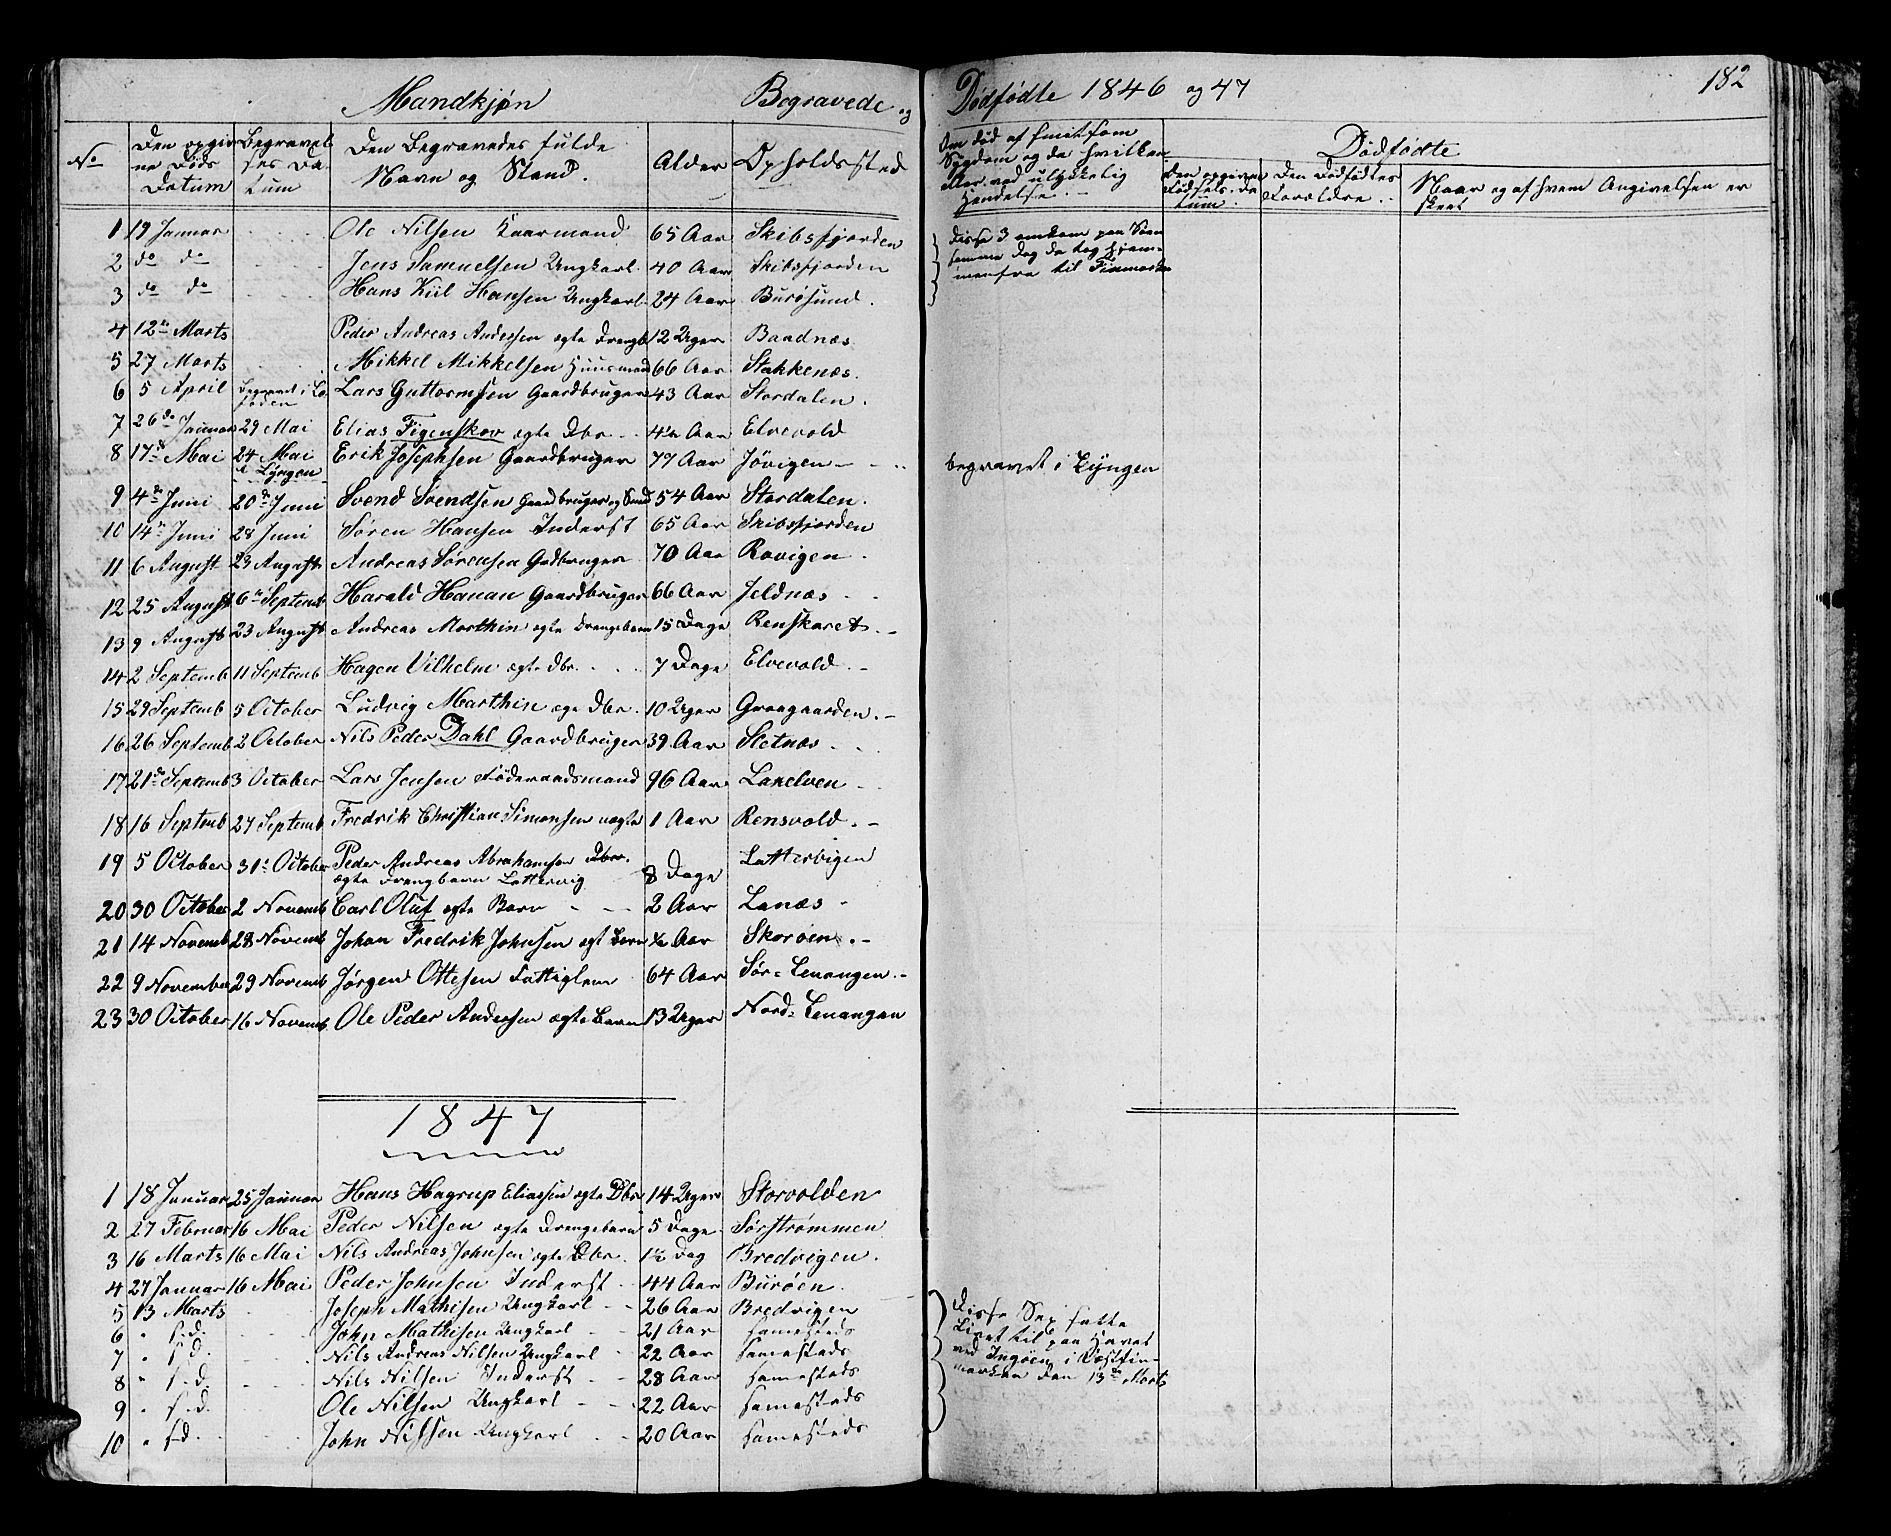 Mandkjøn Begravede og Dødfødte 1846 og 47 182
No
Den opgivne Døds Datum
Begravelses Datum
Den Begravedes fulde Navn og Stand.
Alder
Opholdssted
Om død af smitsom Sygdom og da hvilken eller ved ulykkelig Hendelse.
Dødfødte
Den opgivne Fødsels Datum.
Den Dødfødtes Forældre.
Naar og af hvem Angivelsen er skeet
1 19 Januar Ole Nilsen Kaarmand 65 Aar Skibsfjorden
2 do do Jens Samuelsen Ungkarl 40 Aar Skibsfjorden
3 do do Hans Kiil Hansen Ungkarl 24 Aar Burøsund.
Disse 3 omkom paa Søen
samme Dag da tog hjem-
menfra til Finmarken
4 12te Marts Peder Andreas Anderssen ægte Drengb 12 Uger Baadnæs
5 27 Marts Mikkel Mikkelsen Huusmand 66 Aar Stakkenæs.
6 5 April Begravet i Lofoden Lars Guttormsen Gaardbruger 43 Aar Stordalen.
7 26de Januar 29 Mai Elias Figenskov ægte Dbr. 4½ Aar Elvevold
8 17de Mai 24 Mai i Lyngen Erik Josephsen Gaardbruger 79 Aar Jøvigen begravet i Lyngen
9 4de Juni 20de Juni Svend Svendsen Gaardbruger og Smed 54 Aar Stordalen.
10 14de Juni 28 Juni Søren Hansen Inderst 65 Aar Skibsfjorden
11 6 August 23 August Andreas Sørensen Gdbruger 70 Aar Ravigen.
12 25 August 6te Septemb Harald Hanan Gaardbruger 66 Aar Jeldnæs
13 9 August 23 August Andreas Marthin ægte Drengebarn 15 Dage Renskaret.
14 2 Septemb 11 Septemb Hagen Vilhelm ægte Dbr. 7 Dage Elvevold.
15 29 Septemb 5 October Ludvig Marthin ægte Dbr. 10 Uger Graagaarden.
16 26 Septemb 2 October Nils Peder Dahl Gaardbruger 39 Aar Sletnæs
17 21de Septemb 3 October Lars Jensen Føderaadsmand 96 Aar Lakelven
18 16 Septemb 27 Septemb Fredrik Christian Simonsen uægte 1 Aar Rensvold.
19 5 October 31te October Peder Andreas Abrahamsen Dbr. 8 Dage Lattervigen
ægte Drengbarn Lattervig
20 30 October 2 Novemb Carl Oluf ægte Barn 2 Aar Lanæs
21 14 Novemb 28 Novemb Johan Fredrik Johnsen ægt Barn ½ Aar Skorøen.
22 9 November 29 Novemb Jørgen Ottesen Fattiglem 64 Aar Sør=Lenangen.
23 30 October 16 Novemb Ole Peder Andersen ægte Barn 13 Uger Nord=Lenangen
1847
1 18 Januar 25 Januar Hans Hagrup Eliassen ægte Dbr 14 Uger Storvolden
2 27 Februar 16 Mai Peder Nilsen ægte Drengebarn 5 Dage Sørstrømmen
3 16 Marts 16 Mai Nils Andreas Johnsen ægte Dbr. 1½ Dag Bredvigen.
4 27 Januar 16 Mai Peder Johnsen Inderst 44 Aar Burøen.
5 13 Marts Joseph Mathisen Ungkarl 26 Aar Bredvigen
6 " s.d. John Mathisen Ungkarl 21 Aar sammesteds
7 " s.d. Nils Andreas Nilsen Ungkarl 22 Aar sammesteds
8 " s.d. Nils Nilsen Inderst 28 Aar sammesteds
9 " s.d. Ole Nilsen Ungkarl 22 Aar sammesteds
10 " s.d. John Nilsen Ungkarl 20 Aar sammesteds
Disse Sex satte
Livet til paa Havet
ved Ingøen i Vestfin-
marken den 13de Marts